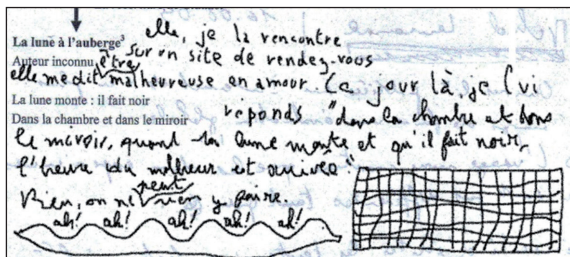 elle, je la rencontre
La lune à l'auberge³ sur un site de rendez-vous
Auteur inconnu être
elle me dit malheureuse en amour. Ce jour là, je lui
La lune monte : il fait noir
réponds "dans la chambre et dans
Dans la chambre et dans le miroir
le miroir, quand la lune monte et qu'il fait noir,
l'heure du malheur est arrivée"
peut
Rien, on ne rien y faire.
ah! ah! ah! ah! ah!